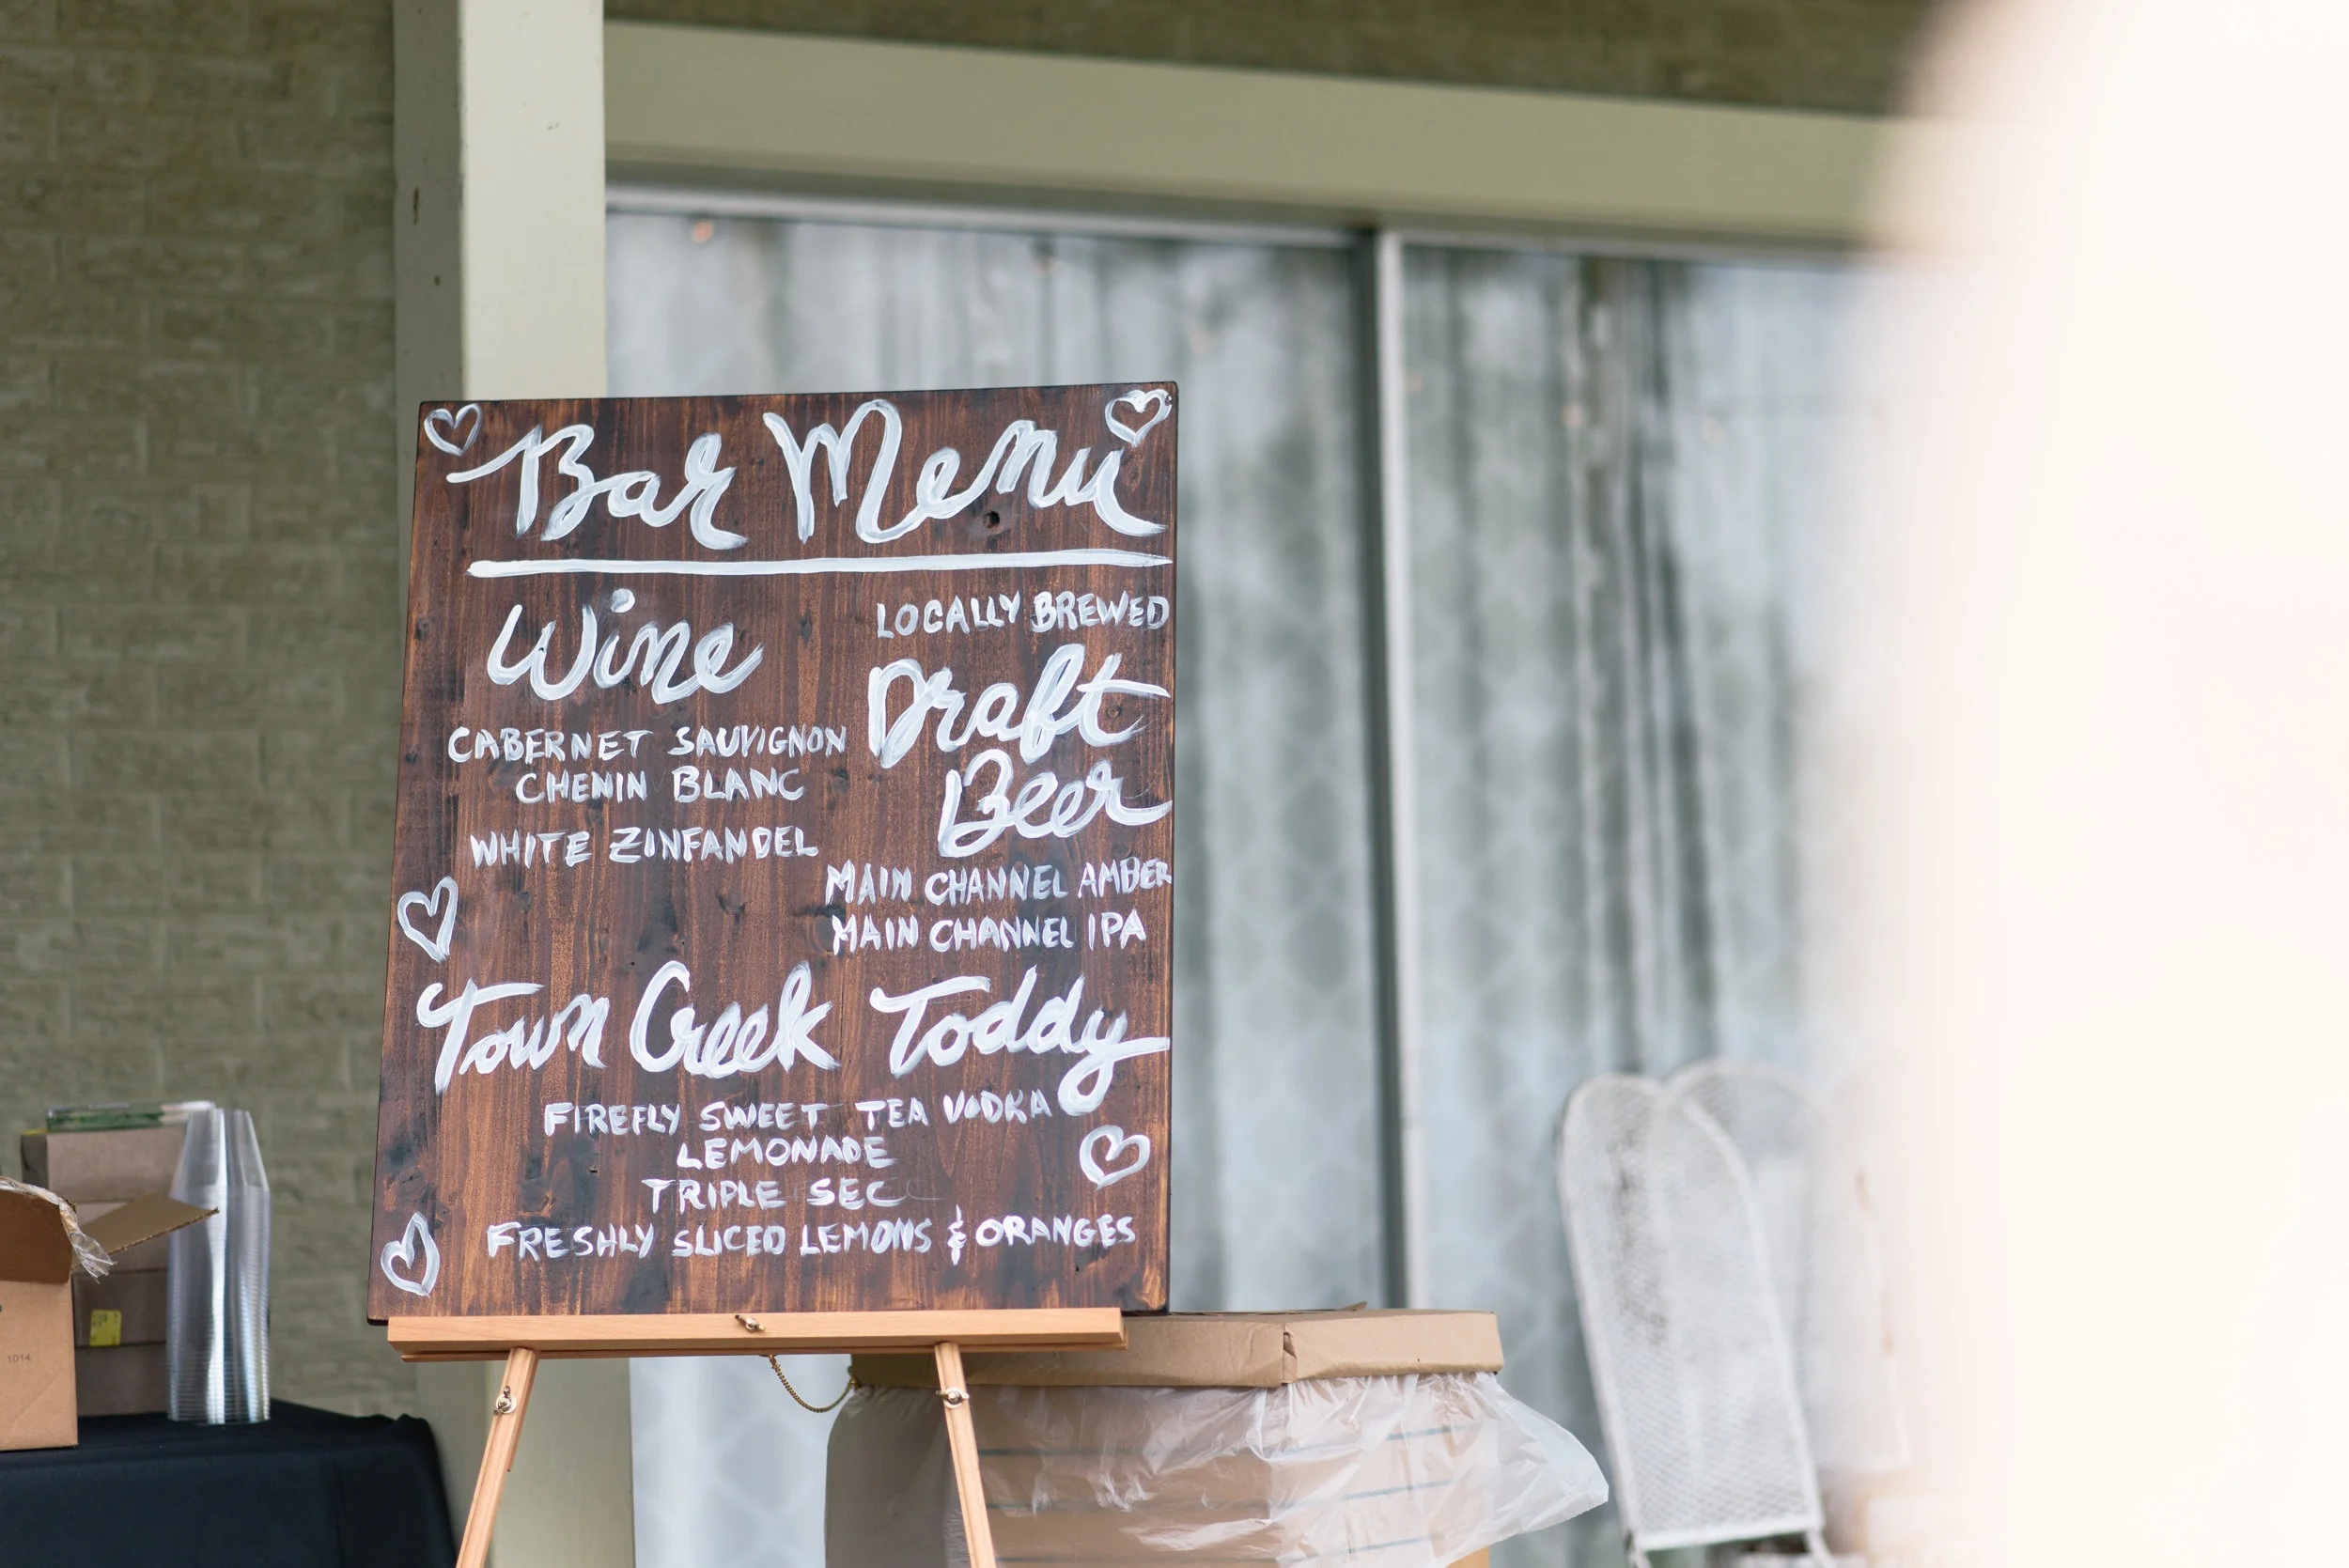 Bar Menu
Wine
CABERNET SAUVIGNON
CHENIN BLANC
WHITE ZINFANDEL
LOCALLY BREWED
Draft
Beer
MAIN CHANNEL AMBER
MAIN CHANNEL IPA
Town Creek Toddy
FIREFLY SWEET TEA VODKA
LEMONADE
TRIPLE SEC
FRESHLY SLICED LEMONS & ORANGES
1014